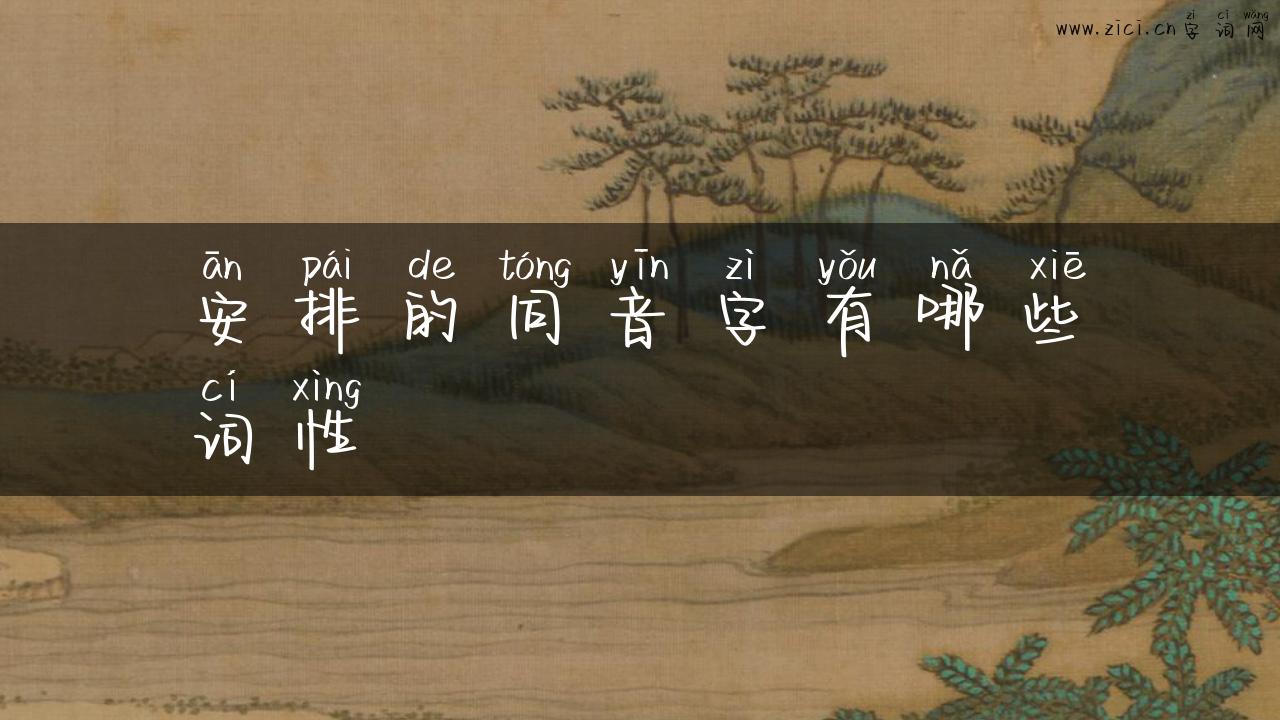 zì cí wǎng
www.zici.cn 字词网
ān pái de tóng yīn zì yǒu nǎ xiē
安排的同音字有哪些
cí xìng
词性